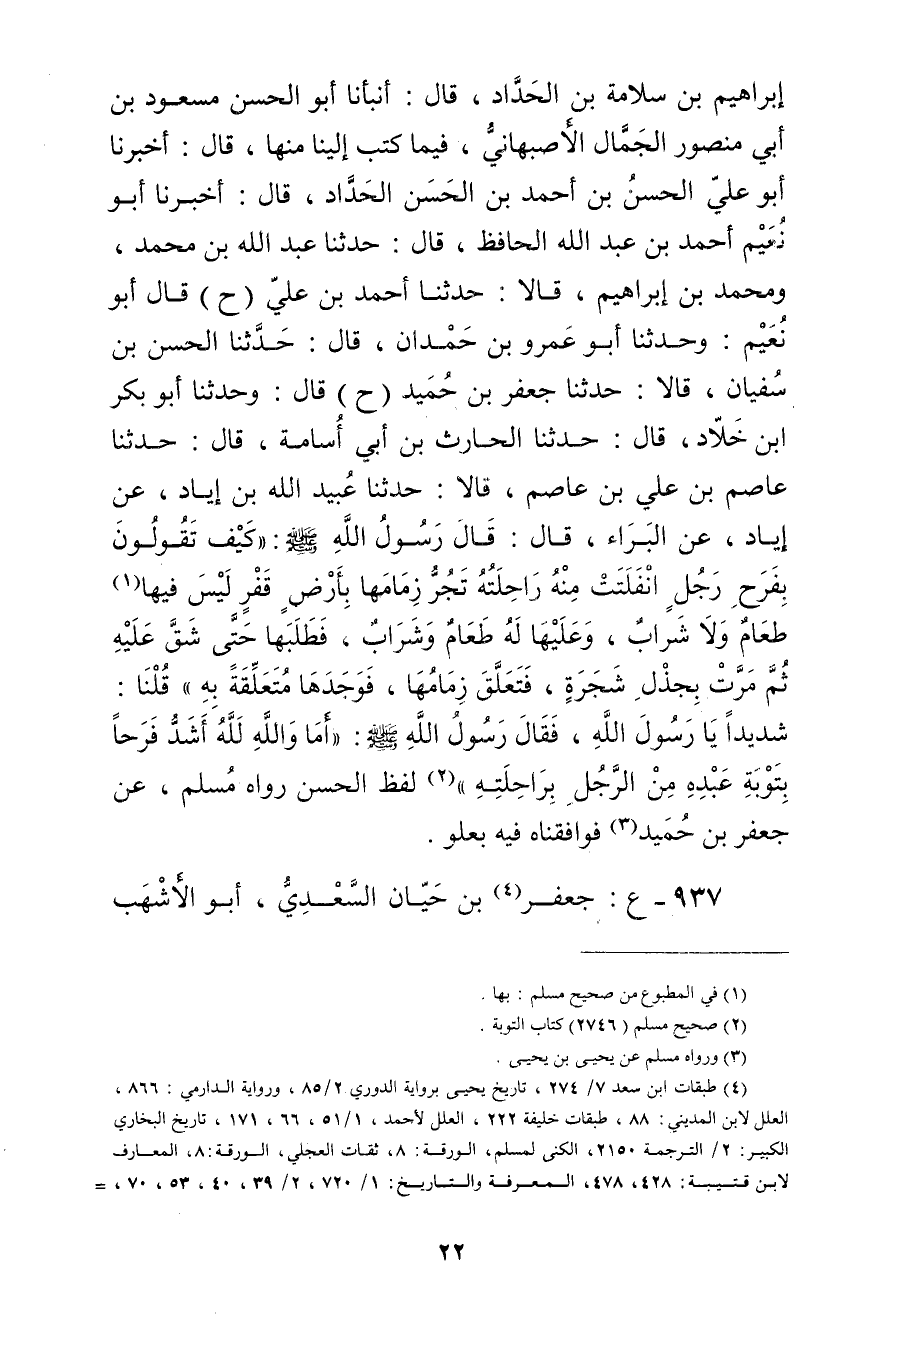 إبراهيم بن سلامة بن الحَدَّاد ، قال : أنبأنا أبو الحسن مسعود بن
أبي منصور الجَمَّال الأَصبهانيُّ ، فيما كتب إلينا منها ، قال : أخبرنا
أبو عليّ الحسنُ بن أحمد بن الحَسَن الحَدَّاد ، قال : أخبرنا أبو
نُعَيْم أحمد بن عبد الله الحافظ ، قال : حدثنا عبد الله بن محمد ،
ومحمد بن إبراهيم ، قالا : حدثنا أحمد بن عليّ (ح) قال أبو
نُعَيْم : وحدثنا أبو عَمرو بن حَمْدان ، قال : حَدَّثنا الحسن بن
سُفيان ، قالا : حدثنا جعفر بن حُمَيد (ح) قال : وحدثنا أبو بكر
ابن خَلاّد، قال : حدثنا الحارث بن أبي أُسامة ، قال : حدثنا
عاصم بن علي بن عاصم ، قالا : حدثنا عُبيد الله بن إياد ، عن
إياد ، عن البَرَاء ، قال : قَالَ رَسُولُ اللَّهِ ﷺ : «كَيْفَ تَقُولُونَ
بِفَرَحِ رَجُلٍ انْفَلَتَتْ مِنْهُ رَاحِلَتُهُ تَجُرُّ زِمَامَها بِأَرْضٍ قَفْرٍ لَيْسَ فيها(١)
طَعَامٌ وَلَا شَرابٌ ، وَعَلَيْهَا لَهُ طَعَامٌ وَشَرَابٌ ، فَطَلَبَها حَتَّى شَقَّ عَلَيْهِ
ثُمَّ مَرَّتْ بِجِذْلِ شَجَرَةٍ ، فَتَعَلَّقَ زِمَامُهَا ، فَوَجَدَهَا مُتَعَلِّقَةً بِهِ » قُلْنَا :
شديداً يَا رَسُولَ اللَّهِ ، فَقَالَ رَسُولُ اللَّهِ ﷺ : «أَمَا وَاللَّهِ لَلَّهُ أَشَدُّ فَرَحاً
بِتَوْبَةِ عَبْدِهِ مِنْ الرَّجُلِ بِرَاحِلَتِهِ »(٢) لفظ الحسن رواه مُسلم ، عن
جعفر بن حُمَيد(٣) فوافقناه فيه بعلو .
٩٣٧ - ع : جعفر(٤) بن حَيّان السَّعْدِيُّ ، أبو الأَشْهَب
(١) في المطبوع من صحيح مسلم : بها .
(٢) صحيح مسلم (٢٧٤٦) كتاب التوبة .
(٣) ورواه مسلم عن يحيى بن يحيى .
(٤) طبقات ابن سعد ٧/ ٢٧٤ ، تاريخ يحيى برواية الدوري ٨٥/٢ ، ورواية الدارمي : ٨٦٦ ،
العلل لابن المديني: ٨٨ ، طبقات خليفة ٢٢٢ ، العلل لأحمد ، ٥١/١ ، ٦٦ ، ١٧١ ، تاريخ البخاري
الكبير: ٢/ الترجمة ٢١٥٠، الكنى لمسلم، الورقة: ٨، ثقات العجلي، الورقة:٨، المعارف
لابن قتيبة: ٤٢٨، ٤٧٨، المعرفة والتاريخ: ١/ ٧٢٠ ، ٢/ ٣٩ ، ٤٠ ، ٥٣ ، ٧٠ ، =
٢٢